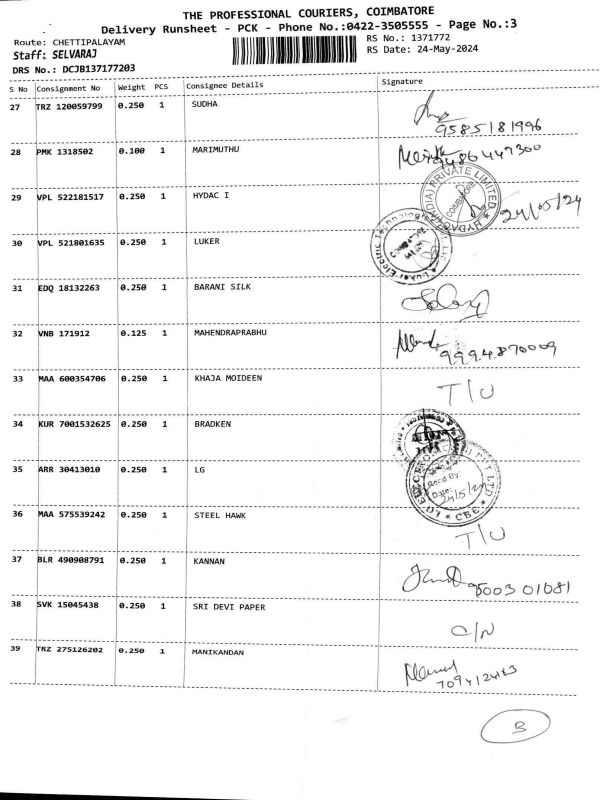 THE PROFESSIONAL COURIERS, COIMBATORE
Delivery Runsheet - PCK - Phone No.:0422-3505555 - Page No.:3
Route: CHETTIPALAYAM RS No.: 1371772
Staff: SELVARAJ RS Date: 24-May-2024
DRS No.: DCJB137177203
S No Consignment No Weight PCS Consignee Details Signature
27 TRZ 120059799 0.250 1 SUDHA
9585181996
28 PMK 1318502 0.100 1 MARIMUTHU 9486447300
29 VPL 522181517 0.250 1 HYDAC I HYDAC (INDIA) PRIVATE LIMITED COIMBATORE 24/05/24
30 VPL 521801635 0.250 1 LUKER Luker Electric Technologies COIMBATORE
31 EDQ 18132263 0.250 1 BARANI SILK
32 VNB 171912 0.125 1 MAHENDRAPRABHU
9994870009
33 MAA 600354706 0.250 1 KHAJA MOIDEEN T/U
34 KUR 7001532625 0.250 1 BRADKEN
35 ARR 30413010 0.250 1 LG LG PVT LTD CBE Recd By: Date: 24/5/24
36 MAA 575539242 0.250 1 STEEL HAWK T/U
37 BLR 490908791 0.250 1 KANNAN 95003 01081
38 SVK 15045438 0.250 1 SRI DEVI PAPER C/N
39 TRZ 275126202 0.250 1 MANIKANDAN
B